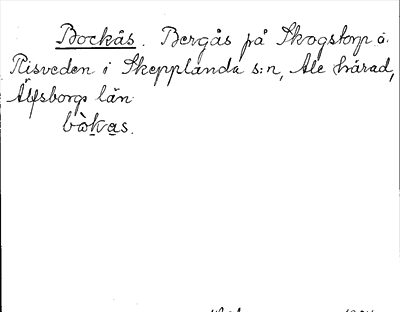 Bockås. Bergås på Skogstorp å.
Risveden i Skepplanda s:n, Ale härad,
Älfsborgs län.
bòkas.